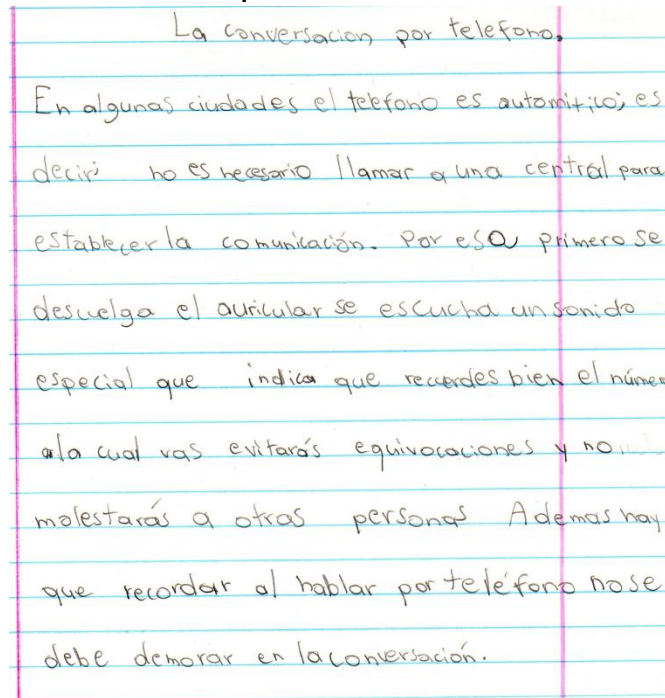 La conversacion por telefono.
En algunas ciudades el teléfono es automitico; es
decir; no es necesario llamar a una central para
establecer la comunicación. Por eso primero se
descuelga el auricular se escucha un sonido
especial que indica que recuerdes bien el númer
a la cual vas evitarás equivocaciones y no
molestarás a otras personas Ademas hay
que recordar al hablar por teléfono no se
debe demorar en la conversación.